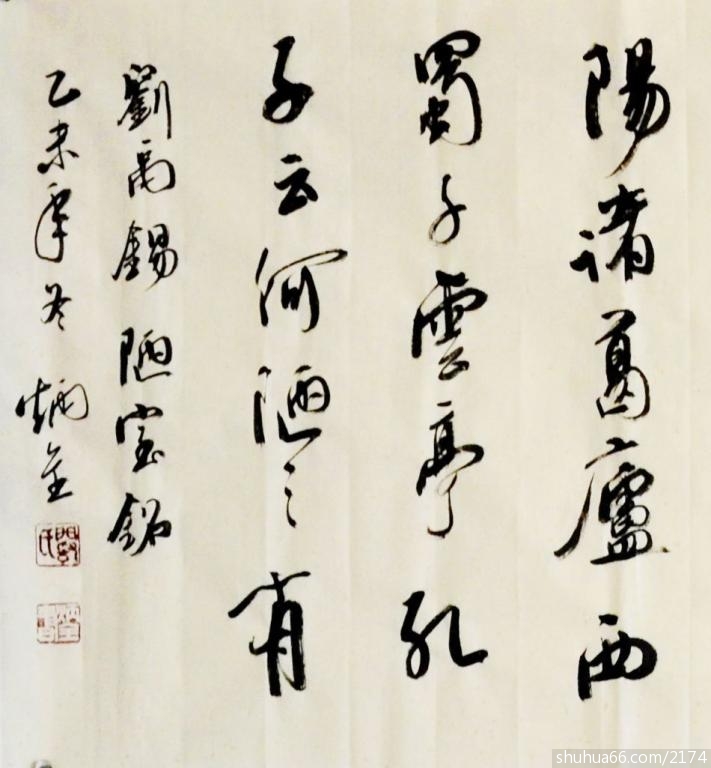 陽諸葛廬西
蜀子雲亭孔
子云何陋之有
劉禹錫陋室銘
乙未年冬炳全
shuhua66.com/2174